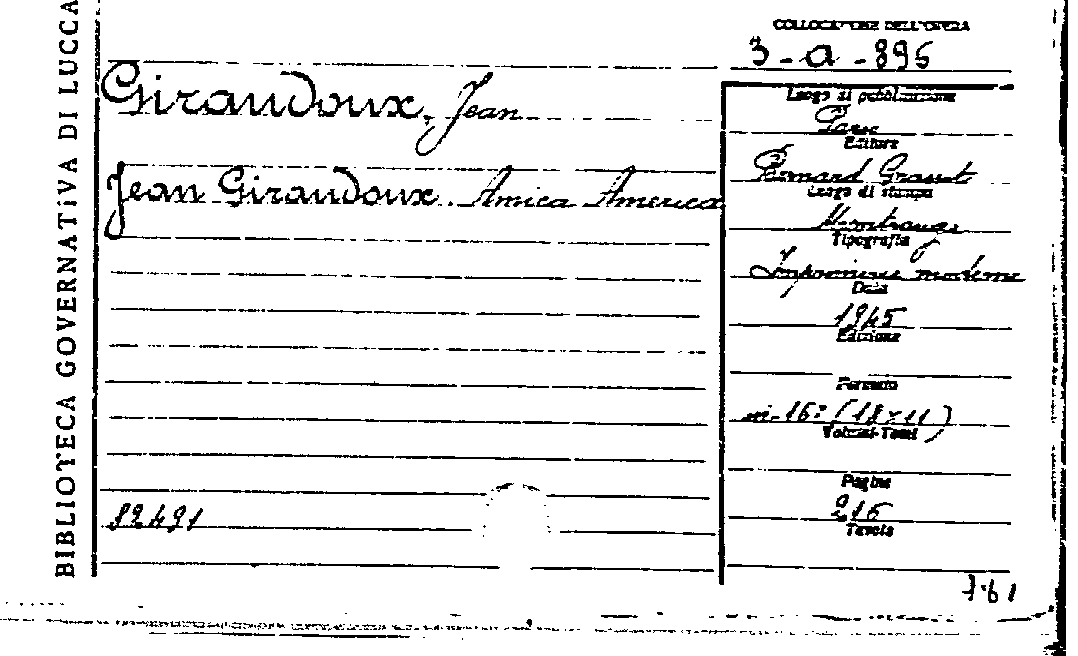 BIBLIOTECA GOVERNATIVA DI LUCCA
COLLOCAZIONE DELL'OPERA
3-a-896
Giraudoux, Jean
Jean Giraudoux. Amica America
Luogo di pubblicazione
Paris
Editore
Bernard Grasset
Luogo di stampa
Montrouge
Tipografia
Imprimerie moderne
Data
1945
Edizione
Formato
in-16: (18×11)
Volumi-Tomi
Pagine
216
Tavole
82491